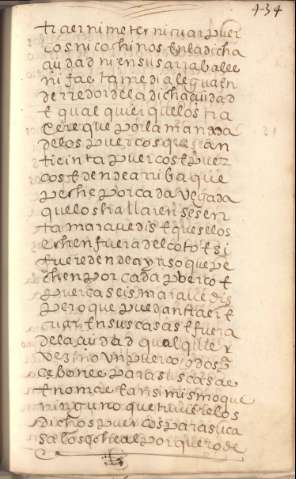 434
traer ni meter ni criar puer
cos ni cochinos en la dicha
çiudad ni en sus arrabales
ni fasta media legua en
derredor de la dicha çiudad
e qual quier que los tra
xere que por la manada
de los puercos que sean
treinta puercos e puer
cos e dende arriba que
peche por cada vegada
que los hallaren sesen
ta maravedis e que se los
echen fuera del coto e si
fuere dende ayuso que pe
chen por cada puerco e
puerca seis maravedis
pero que puedan traer e
criar en sus casas e fuera
de la çiudad qualquier
vezino un puerco o dos
çebones para sus casas
e no mas e ansi mismo que
ninguno que tuviere los
dichos puercos para su ca
sa los qo heal porquero de